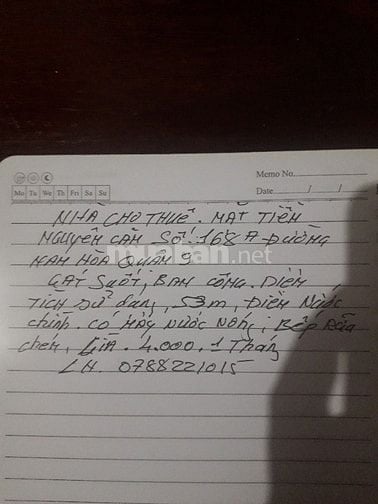 Memo No.
Mo Tu We Th Fri Sa Su
Date / /
NHÀ CHO THUÊ. MẶT TIỀN
NGUYÊN CĂN SỐ: 168 A ĐƯỜNG
NAM HÒA QUẬN 9
GÁT SUỐT, BAN CÔNG. DIỆN
TÍCH SỬ dụng, 53m, ĐIỆN NƯỚC
chính. CÓ MÁY NƯỚC NÓNG; BẾP RỬA
chén, GIA. 4.000. 1 Tháng
LH. 0788221015
muaban.net